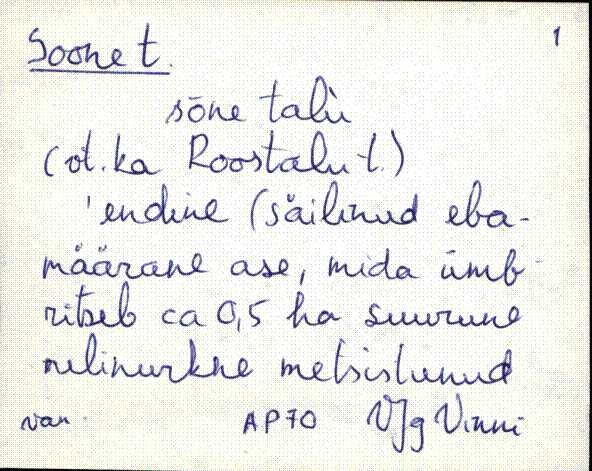 Soone t. 1
sōne talù
(vt. ka Roostalu t.)
'endine (säilinud eba-
määrane ase, mida ümb-
ritseb ca 0,5 ha suurune
nelinurkne metsistunud
van. AP70 VJg Vinni